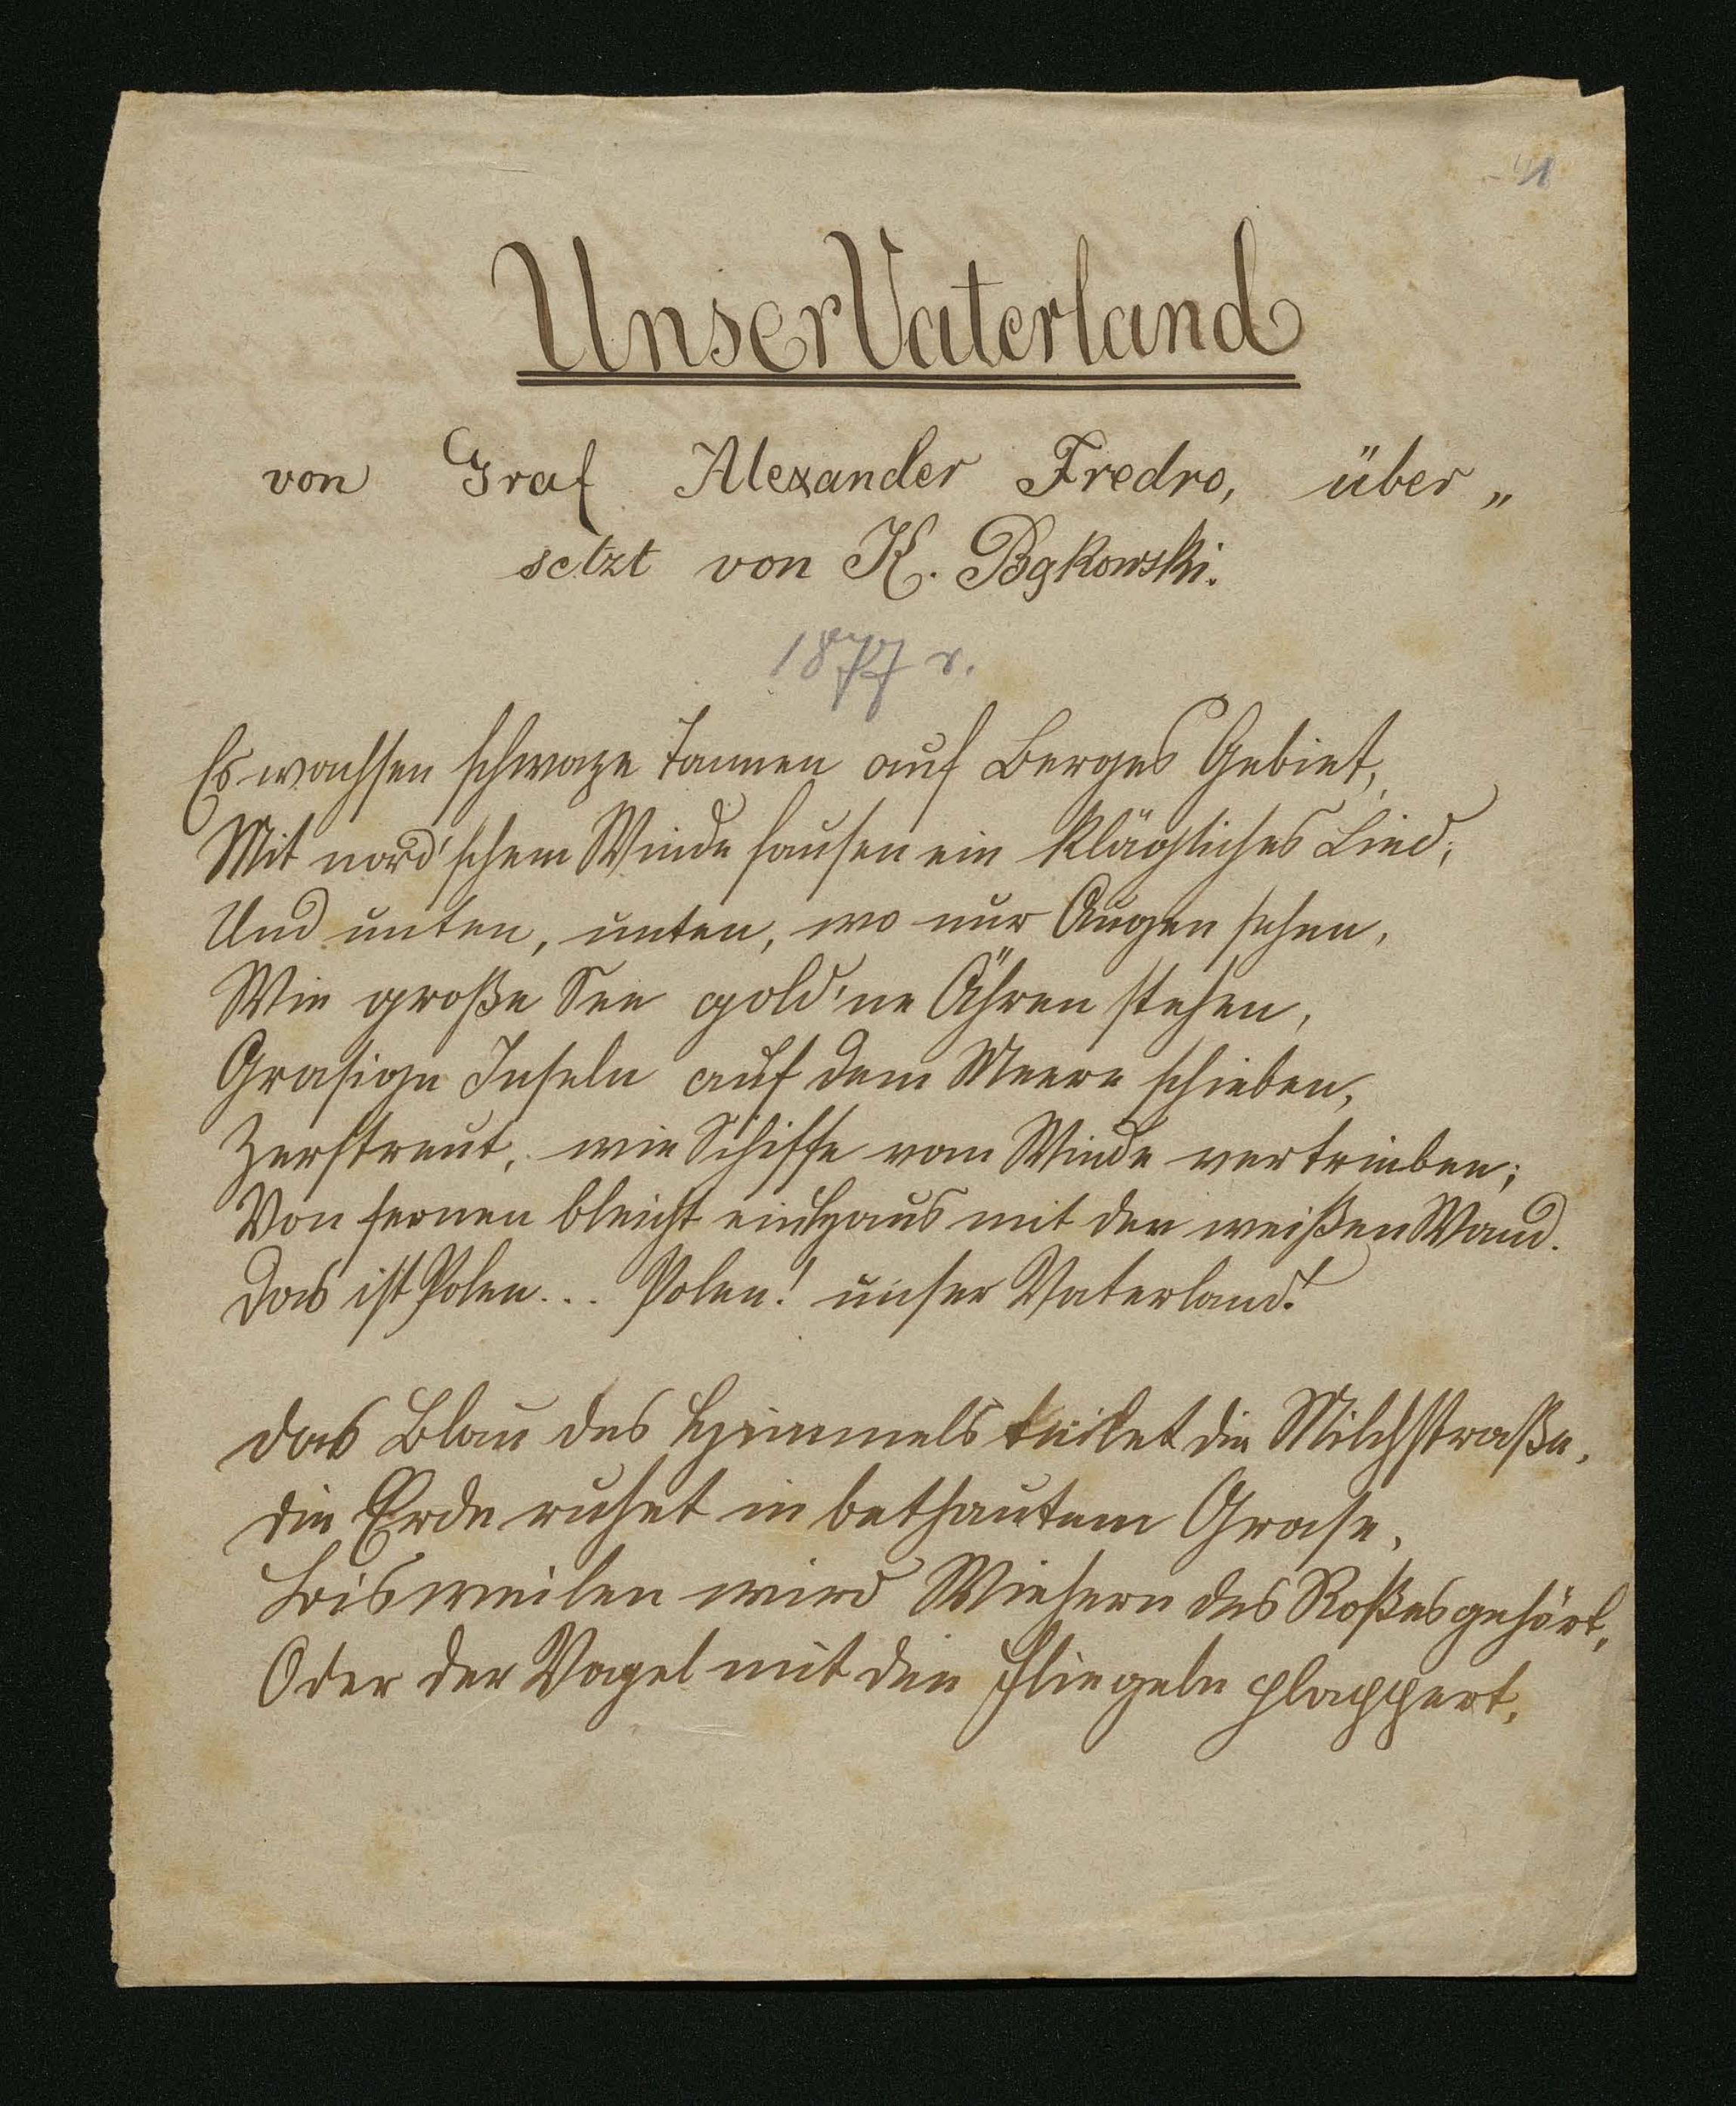 41
Unser Vaterland
von Graf Alexander Fredro, über„
setzt von K. Bąkowski.
1877 r.
Es wachsen schwaze Tannen auf Berges Gebiet,
Mit nord'schem Winde sausen ein klägliches Lied;
Und unten, unten, wo nur Augen sehen,
Wie große See gold'ne Ähren stehen,
Grasige Inseln auf dem Meere schieben,
Zerstreut, wie Schiffe vom Winde vertrieben;
Von fernen bleicht ein Haus mit der weißen Wand.
Das ist Polen... Polen! unser Vaterland!
Das Blau des Himmels teilet die Milchstraße,
Die Erde ruhet in bethautem Grase,
Bisweilen wird Wiehern des Roßes gehört,
Oder der Vogel mit die Fliegeln plappert,